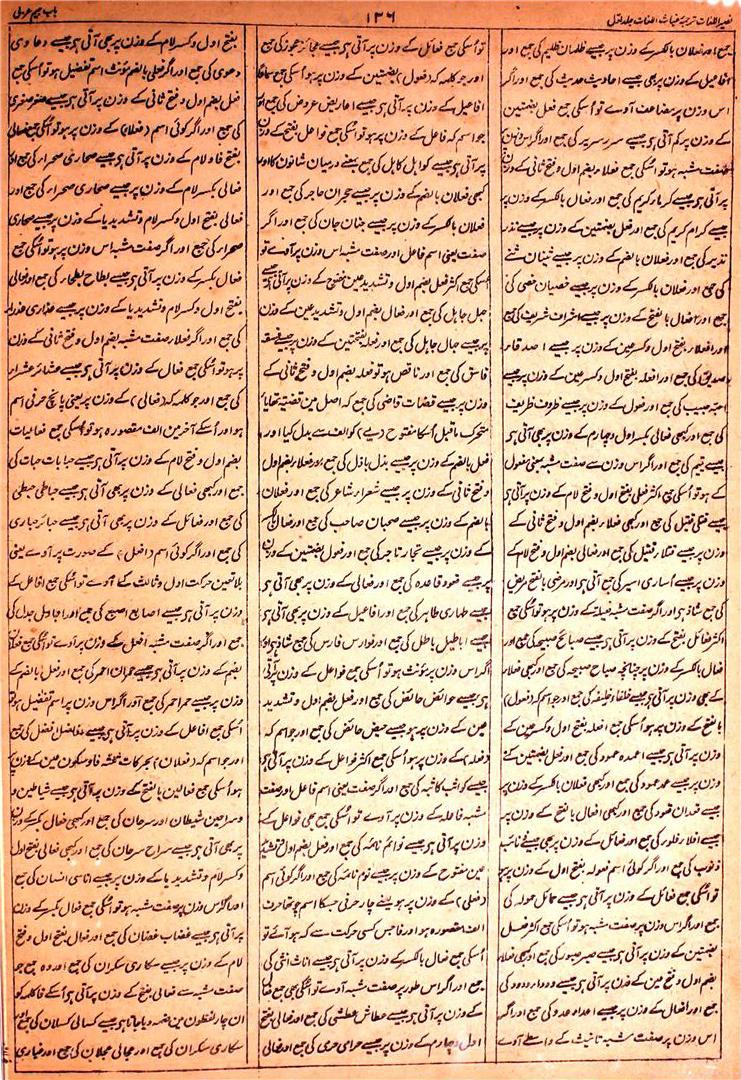 نصیر اللغات ترجمۂ غیاث اللغات جلد اول
۱۳۶
باب جیم عربی
جمع اور فعلان بالکسر کے وزن پر جیسے ظلمان ظلیم کی جمع اور
افاعیل کے وزن پر بھی جیسے احادیث حدیث کی جمع اور اگر
اس وزن پر مضاعف آوے تو اُسکی جمع فعل بضمتین
کے وزن پر کم آتی ہو جیسے سرر سریر کی جمع اور اگر اس وزن
صفت مشبہ ہو تو اُسکی جمع فعلاء بضم اول و فتح ثانی کے وزن
پر آتی ہو جیسے کرماء کریم کی جمع اور فعال بالکسر کے وزن پر
جیسے کرام کریم کی جمع اور فعل بضمتین کے وزن پر جیسے نذر
نذیر کی جمع اور فعلان بالضم کے وزن پر جیسے ثنیان ثنی
کی جمع اور فعلان بالکسر کے وزن پر جیسے خصیان خصی کی
جمع اور افعال بالفتح کے وزن پر جیسے اشراف شریف کی جمع
اور افعلاء بفتح اول و کسر عین کے وزن پر جیسے اصدقاء
صدیق کی جمع اور افعلہ بفتح اول و کسر عین کے وزن پر جیسے
احبہ حبیب کی جمع اور فعول کے وزن پر جیسے ظروف ظریف
کی جمع اور کبھی فعالی بکسر اول و چہارم کے وزن پر بھی آتی ہو
جیسے یتیم کی جمع اور اگر اس وزن سے صفت مشبہ بمعنی مفعول
کے ہو تو اُسکی جمع اکثر فعلی بفتح اول و فتح لام کے وزن پر آتی ہو
جیسے قتلی قتیل کی جمع اور کبھی فعلاء بضم اول و فتح ثانی کے
وزن پر جیسے قتلاء قتیل کی جمع اور فعالی بضم اول و فتح لام کے
وزن پر جیسے اُساری اسیر کی جمع آتی ہو اور مرضی بالفتح مریض
کی جمع شاذ ہو اور اگر صفت مشبہ فعیلۃ کے وزن پر ہو تو اُسکی جمع
اکثر فعائل بفتح کے وزن پر آتی ہو جیسے صبائح صبیحہ کی جمع اور
فعال بالکسر کے وزن پر چنانچہ صباح صبیحہ کی جمع اور کبھی فعلاء
کے بھی وزن پر آتی ہو جیسے خلفاء خلیفہ کی جمع اور جو اسم کہ (فعول)
بالفتح کے وزن پر ہو اُسکی جمع افعلہ بفتح اول و کسر عین کے
وزن پر آتی ہو جیسے اعمدہ عمود کی جمع اور فعل بضمتین کے
وزن پر جیسے عمد عمود کی جمع اور کبھی فعلان بالکسر کے وزن پر
جیسے قعدان قعود کی جمع اور کبھی افعال بالفتح کے وزن پر
جیسے افلاء فلو کی جمع اور فعائل کے وزن پر بھی جیسے ذنائب
ذنوب کی جمع اور اگر کوئی اسم فعولہ بفتح اول کے وزن پر ہو
تو اُسکی جمع فعائل کے وزن پر آتی ہو جیسے حمائل حمولہ کی
جمع اور اگر اس وزن پر صفت مشبہ ہو تو اُسکی جمع اکثر فعل
بضمتین کے وزن پر آتی ہو جیسے صبر صبور کی جمع اور کبھی فعلاء
بضم اول و فتح عین کے وزن پر آتی ہو جیسے ودداء ودود کی
جمع اور افعال کے وزن پر جیسے اعداء عدو کی جمع اور اگر
اس وزن پر صفت مشبہ تانیث کے واسطے آوے
تو اُسکی جمع فعائل کے وزن پر آتی ہو جیسے عجائز عجوز کی جمع
اور جو کلمہ کہ (فعول) بضمتین کے وزن پر ہو اُسکی جمع سماعاً
افاعیل کے وزن پر آتی ہو جیسے اعاریض عروض کی جمع اور
جو اسم کہ فاعل کے وزن پر ہو تو اُسکی جمع فواعل بفتح کے وزن
پر آتی ہو جیسے کواہل کاہل کی جمع یعنے درمیان شانوں کا اور
کبھی فعلان بالضم کے وزن پر جیسے حجران حاجر کی جمع اور
فعلان بالکسر کے وزن پر جیسے جنان جان کی جمع اور اگر
صفت یعنی اسم فاعل اور صفت مشبہ اس وزن پر آوے تو
اُسکی جمع اکثر فعل بضم اول و تشدید عین مفتوح کے وزن پر آتی ہو جیسے
جہل جاہل کی جمع اور فعال بضم اول و تشدید عین کے وزن
پر جیسے جہال جاہل کی جمع اور فعلہ بفتحتین کے وزن پر جیسے فسقہ
فاسق کی جمع اور ناقص ہو تو فعلہ بضم اول و فتح ثانی کے
وزن پر جیسے قضات قاضی کی جمع کہ اصل میں قضیۃ تھا یا
متحرک ماقبل اُسکا مفتوح (یے) کو الف سے بدل کیا اور
فعل بالضم کے وزن پر جیسے بذل باذل کی جمع اور فعلاء بضم اول
و فتح ثانی کے وزن پر جیسے شعراء شاعر کی جمع اور فعلان
بالضم کے وزن پر جیسے صحبان صاحب کی جمع اور فعال بالکسر
کے وزن پر جیسے تجار تاجر کی جمع اور فعول بضمتین کے وزن
پر جیسے قعود قاعدہ کی جمع اور فعالی کے وزن پر بھی آتی ہو
جیسے طہاری طاہر کی جمع اور افاعیل کے وزن پر بھی آتی ہو
جیسے اباطیل باطل کی جمع اور فوارس فارس کی جمع شاذ ہو اور
اگر اس وزن پر مؤنث ہو تو اُسکی جمع فواعل کے وزن پر آتی
ہو جیسے حوائض حائض کی جمع اور فعل بضم اول و تشدید
عین کے وزن پر ہو جیسے حیض حائض کی جمع اور جو اسم کہ
(فاعلہ) کے وزن پر ہو اُسکی جمع اکثر فواعل کے وزن پر آتی ہو
جیسے کواثب کاثبہ کی جمع اور اگر صفت یعنی اسم فاعل اور صفت
مشبہ فاعلہ کے وزن پر آوے تو اُسکی جمع بھی فواعل کے
وزن پر آتی ہو جیسے نوائم نائمہ کی جمع اور فعل بضم اول و تشدید
عین مفتوح کے وزن پر جیسے نوم نائمہ کی جمع اور اگر کوئی اسم
(فعلی) کے وزن پر ہو یعنے چار حرفی جسکا اسم چوتھا حرف
الف مقصورہ ہو اور فا جس کسی حرکت سے کہ ہو آئے تو
اُسکی جمع فعال بالکسر کے وزن پر آتی ہو جیسے اناث انثی کی
جمع اور اگر اس طور پر صفت مشبہ آوے تو اُسکی بھی جمع فعال
کے وزن پر آتی ہو جیسے عطاش عطشی کی جمع اور فعالی بفتح
اول و چہارم کے وزن پر جیسے حرامی حرمی کی جمع اور فعالی
بفتح اول و کسر لام کے وزن پر بھی آتی ہو جیسے دعاوی
دعوی کی جمع اور اگر فعلی بالضم مؤنث اسم تفضیل ہو تو اُسکی جمع
فعل بضم اول و فتح ثانی کے وزن پر آتی ہو جیسے صغر صغری
کی جمع اور اگر کوئی اسم (فعلاء) کے وزن پر ہو تو اُسکی جمع فعالی
بفتح فا و لام کے وزن پر آتی ہو جیسے صحاری صحراء کی جمع اور
فعالی بکسر لام کے وزن پر جیسے صحاری صحراء کی جمع اور
فعالی بفتح اول و کسر لام و تشدید یا کے وزن پر جیسے صحاری
صحراء کی جمع اور اگر صفت مشبہ اس وزن پر ہو تو اُسکی جمع
فعال بکسر کے وزن پر آتی ہو جیسے بطاح بطحاء کی جمع اور فعالی
بفتح اول و کسر لام و تشدید یا کے وزن پر جیسے عذاری عذراء
کی جمع اور اگر فعلاء صفت مشبہ بضم اول و فتح ثانی کے وزن
پر ہو تو اُسکی جمع فعال کے وزن پر آتی ہو جیسے عشار عشراء
کی جمع اور جو کلمہ کہ (فعالی) کے وزن پر یعنی پانچ حرفی اسم
ہو اور اُسکے آخر میں الف مقصورہ ہو تو اُسکی جمع فعالیات
بضم اول و فتح لام کے وزن پر آتی ہو جیسے حباریات حباری کی
جمع اور کبھی فعالی کے وزن پر بھی آتی ہو جیسے حباطی حبطی
کی جمع اور فعائل کے وزن پر بھی آتی ہو جیسے حبائر حباری
کی جمع اور اگر کوئی اسم (افعل) کے صورت پر آوے یعنی
بلا تعین حرکات اول و ثالث کے آوے تو اُسکی جمع افاعل کے
وزن پر آتی ہو جیسے اصابع اصبع کی جمع اور اجادل جدل کی
جمع اور اگر صفت مشبہ افعل کے وزن پر آوے تو اُسکی جمع فعلان
بضم کے وزن پر آتی ہو جیسے حمران احمر کی جمع اور فعل بالضم کے
وزن پر جیسے حمر احمر کی جمع اور اگر اس وزن پر اسم تفضیل ہو تو
اُسکی جمع افاعل کے وزن پر آتی ہو جیسے افاضل افضل کی جمع
اور جو اسم کہ (فعلان) بحرکات ثلٰثہ فا و سکون عین کے وزن پر
ہو اُسکی جمع فعالین بالفتح کے وزن پر آتی ہو جیسے شیاطین و
سراحین شیطان اور سرحان کی جمع اور کبھی فعال بکسر کے وزن
پر بھی آتی ہو جیسے سراح سرحان کی جمع اور کبھی فعالی بفتح اول
و کسر لام و تشدید یا کے وزن پر جیسے اناسی انسان کی جمع
اور اگر اس وزن پر صفت مشبہ ہو تو اُسکی جمع فعال بکسر کے وزن
پر آتی ہو جیسے غضاب غضبان کی جمع اور فعالی بفتح اول و فتح
لام کے وزن پر جیسے سکاری سکران کی جمع اور وہ جمع جو
صفت مشبہ سے فعالی بفتح کے وزن پر آتی ہو اُسکے فاکلمہ کو
ان چار لفظوں میں ضمہ دیا جاتا ہو جیسے کسالی کسلان کی جمع
سکاری سکران کی جمع اور عجالی عجلان کی جمع اور غیاری